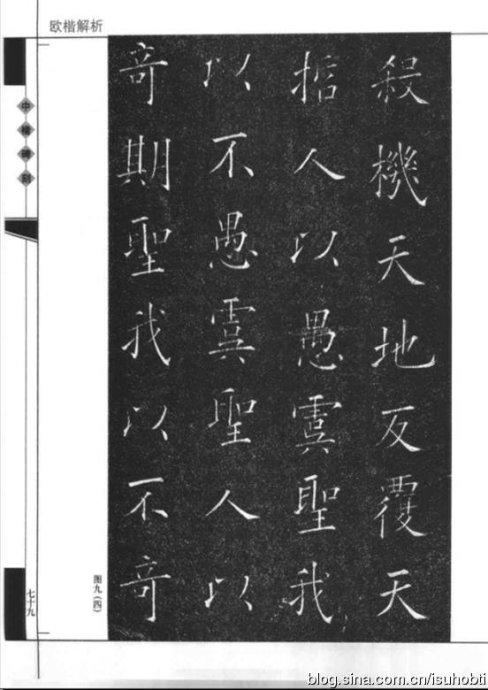 欧楷解析
殺機天地反覆天
人以愚虞聖我
以不愚虞聖人以
奇期聖我以不奇
图九(四)
七十九
blog.sina.com.cn/isuhobti